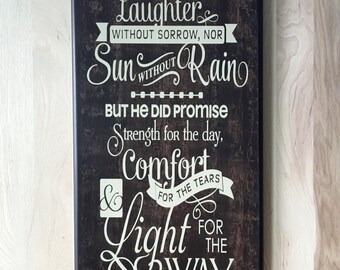 Laughter
WITHOUT SORROW, NOR
Sun WITHOUT Rain
BUT HE DID PROMISE
Strength for the day,
Comfort
FOR THE TEARS
& Light FOR
THE
WAY